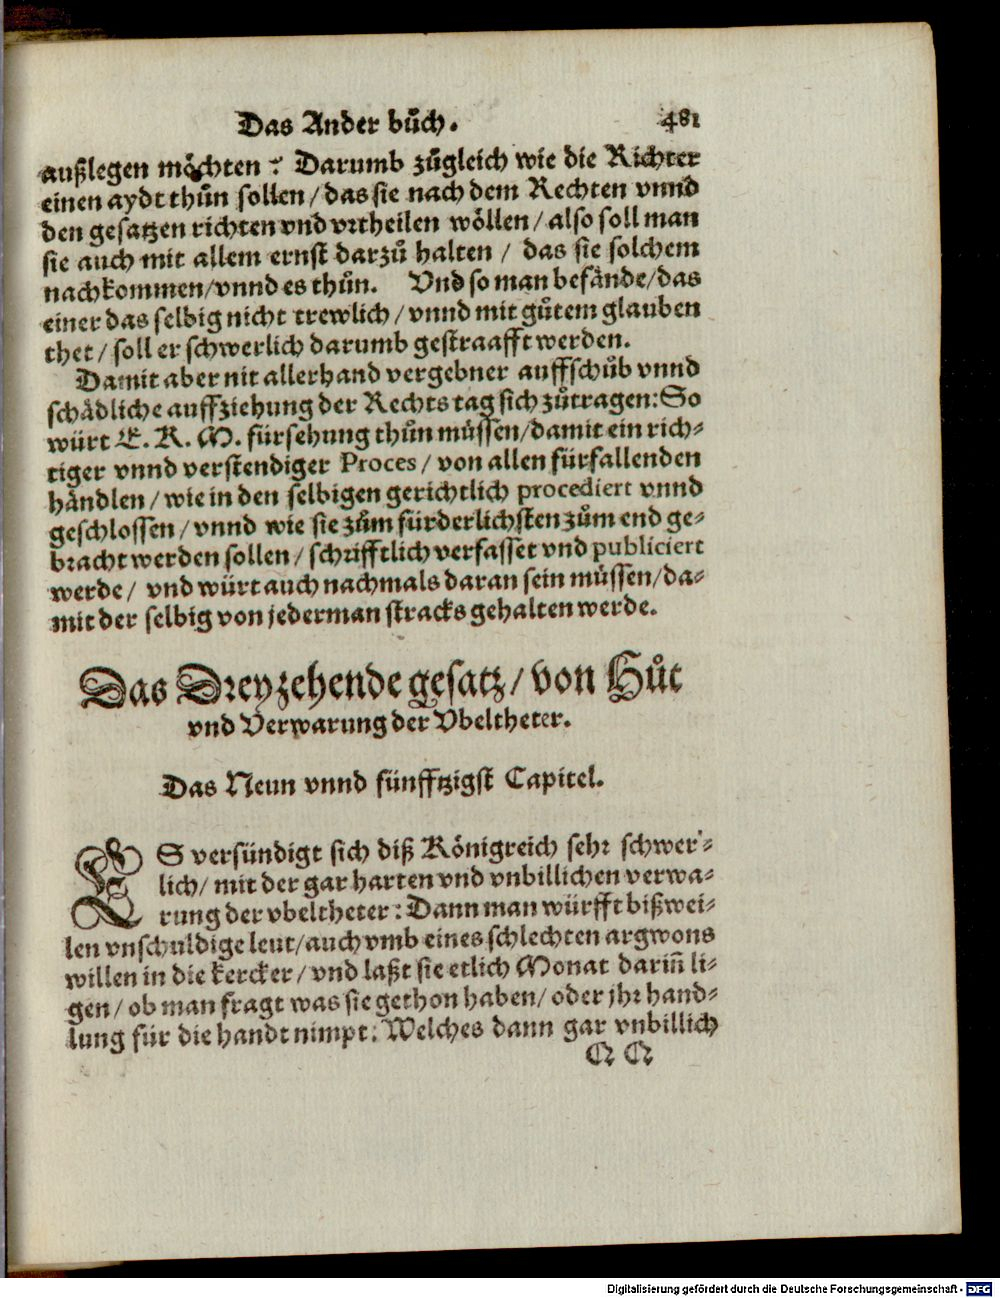 Das Ander bůch. 481
außlegen möchten? Darumb zůgleich wie die Richter
einen aydt thůn sollen / das sie nach dem Rechten vnnd
den gesatzen richten vnd vrtheilen wöllen / also soll man
sie auch mit allem ernst darzů halten / das sie solchem
nachkommen/vnnd es thůn. Vnd so man befände/das
einer das selbig nicht trewlich / vnnd mit gůtem glauben
thet / soll er schwerlich darumb gestraafft werden.
Damit aber nit allerhand vergebner auffschůb vnnd
schädliche auffziehung der Rechts tag sich zůtragen: So
würt E. K. M. fürsehung thůn müssen/damit ein rich-
tiger vnnd verstendiger Proces / von allen fürfallenden
händlen / wie in den selbigen gerichtlich procediert vnnd
geschlossen / vnnd wie sie zům fürderlichsten zům end ge-
bracht werden sollen / schrifftlich verfasset vnd publiciert
werde / vnd würt auch nachmals daran sein müssen/da-
mit der selbig von jederman stracks gehalten werde.
Das Dreyzehende gesatz / von Hůt
vnd Verwarung der Vbeltheter.
Das Neun vnnd fünfftzigst Capitel.
ES versündigt sich diß Königreich sehr schwer-
lich/ mit der gar harten vnd vnbillichen verwa-
rung der vbeltheter: Dann man würfft bißwei-
len vnschuldige leut/auch vmb eines schlechten argwons
willen in die kercker / vnd laßt sie etlich Monat dariñ li-
gen / ob man fragt was sie gethon haben/ oder jhr hand-
lung für die handt nimpt: Welches dann gar vnbillich
Q Q
Digitalisierung gefördert durch die Deutsche Forschungsgemeinschaft - DFG